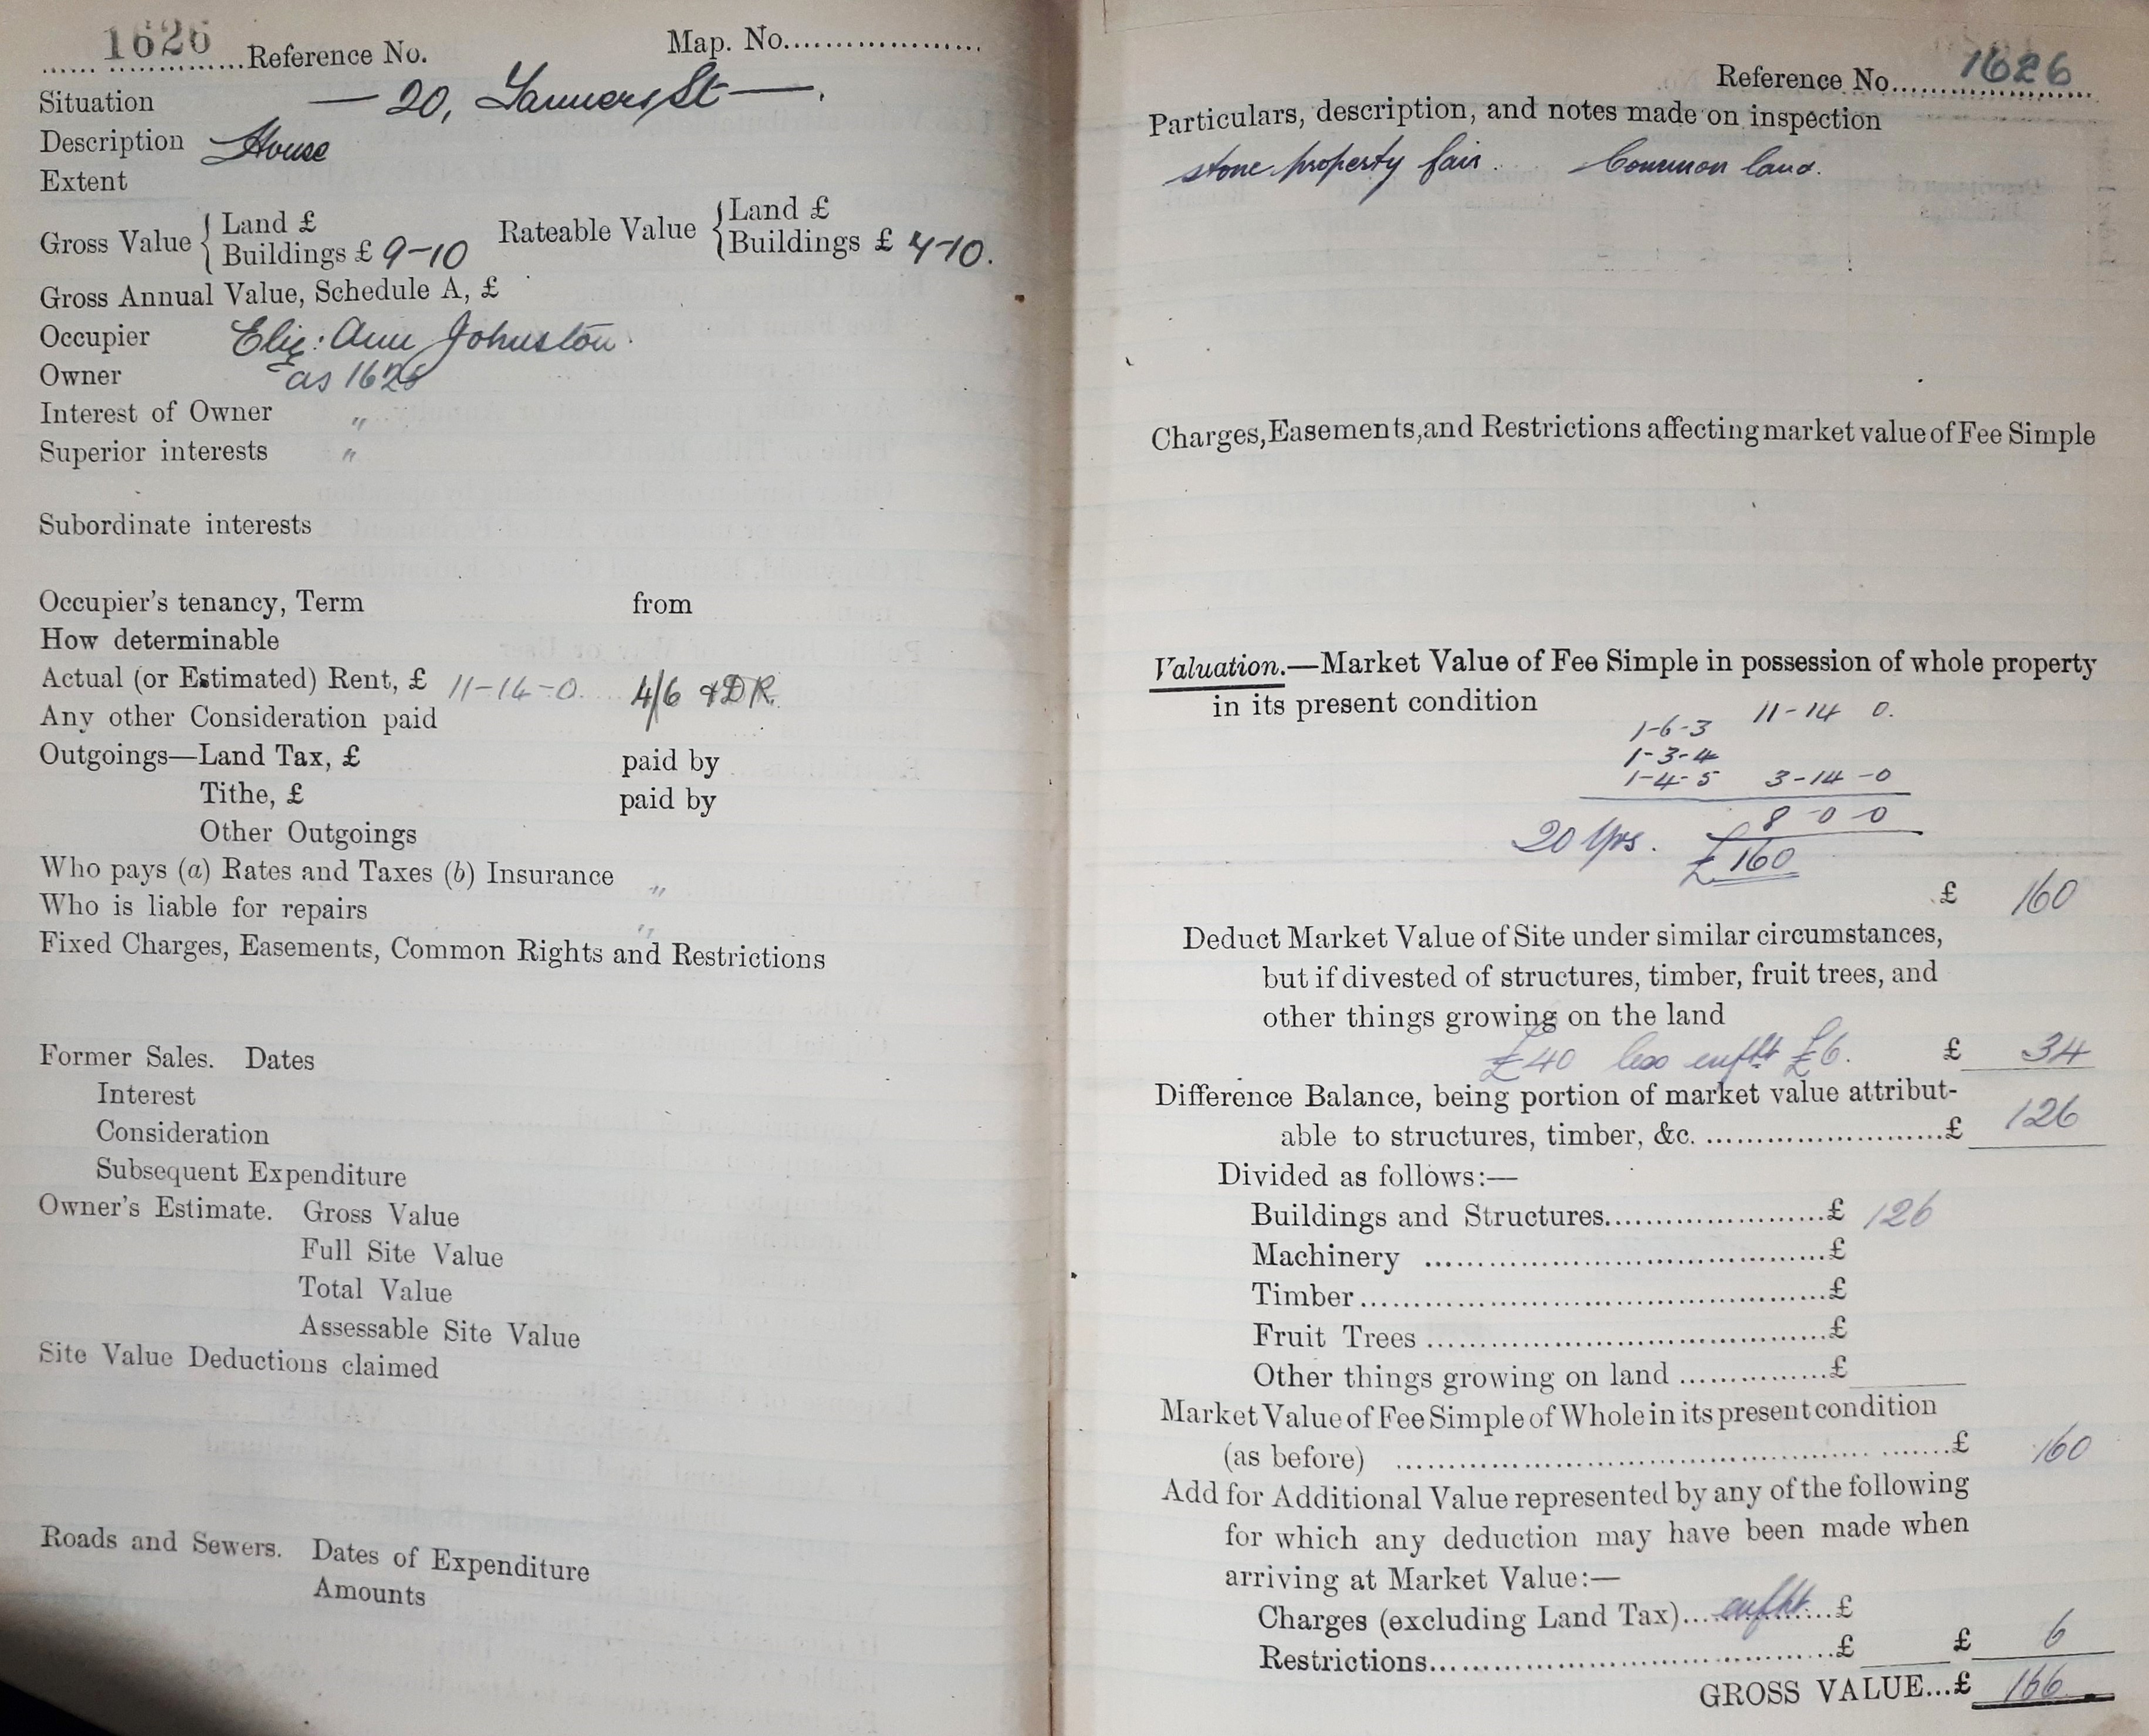 1626 Reference No. Map. No.
Situation — 20, Tanners St —.
Description House
Extent
Gross Value { Land £
Buildings £ 9-10
Rateable Value { Land £
Buildings £ 7-10.
Gross Annual Value, Schedule A, £
Occupier Eliz: Ann Johnston.
Owner as 1625
Interest of Owner "
Superior interests "
Subordinate interests
Occupier's tenancy, Term from
How determinable
Actual (or Estimated) Rent, £ 11-14-0. 4/6 & DR.
Any other Consideration paid
Outgoings—Land Tax, £ paid by
Tithe, £ paid by
Other Outgoings
Who pays (a) Rates and Taxes (b) Insurance "
Who is liable for repairs "
Fixed Charges, Easements, Common Rights and Restrictions
Former Sales. Dates
Interest
Consideration
Subsequent Expenditure
Owner's Estimate. Gross Value
Full Site Value
Total Value
Assessable Site Value
Site Value Deductions claimed
Roads and Sewers. Dates of Expenditure
Amounts
Reference No. 1626
Particulars, description, and notes made on inspection
stone property fair. Common land.
Charges, Easements, and Restrictions affecting market value of Fee Simple
Valuation.—Market Value of Fee Simple in possession of whole property
in its present condition
11-14 0.
1-6-3
1-3-4
1-4-5 3-14-0
8-0-0
20 Yrs. £160
£ 160
Deduct Market Value of Site under similar circumstances,
but if divested of structures, timber, fruit trees, and
other things growing on the land
£40 less £6. £ 34
Difference Balance, being portion of market value attribut-
able to structures, timber, &c. ........................£ 126
Divided as follows:—
Buildings and Structures......................£ 126
Machinery ........................................£
Timber..............................................£
Fruit Trees ........................................£
Other things growing on land ...............£
Market Value of Fee Simple of Whole in its present condition
(as before) ........................................£ 160
Add for Additional Value represented by any of the following
for which any deduction may have been made when
arriving at Market Value:—
Charges (excluding Land Tax)...............£
Restrictions........................................£ £ 6
GROSS VALUE...£ 166